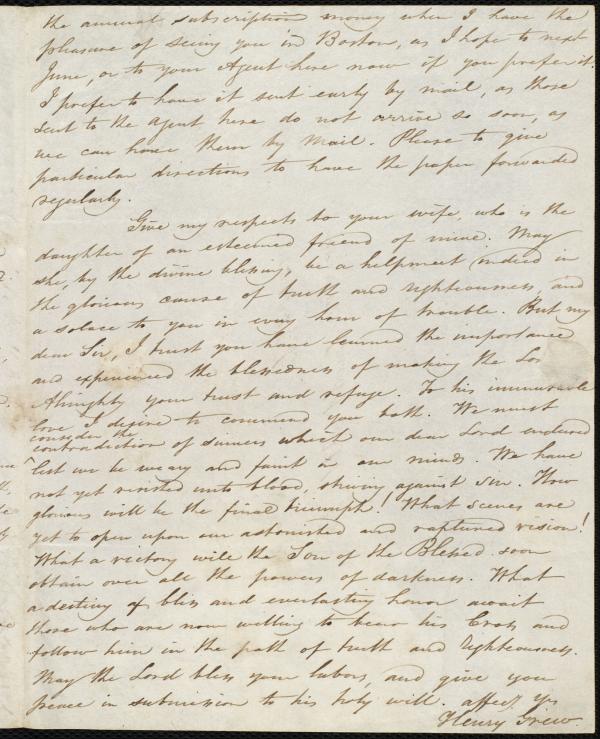 the annual subscription money when I have the
pleasure of seeing you in Boston, as I hope to next
June, or to your Agent here now if you prefer it.
I prefer to have it sent early by mail, as those
sent to the agent here do not arrive so soon, as
we can have them by mail. Please to give
particular directions to have the paper forwarded
regularly.
Give my respects to your wife, who is the
daughter of an esteemed friend of mine. May
she, by the divine blessing, be a helpmeet indeed in
the glorious cause of truth and righteousness, and
a solace to you in every hour of trouble. But my
dear Sir, I trust you have learned the importance
and experienced the blessedness of making the Lor
Almighty your trust and refuge. To his immutable
love I desire to commend you both. We must
consider the
contradiction of sinners which our dear Lord endured
lest we be weary and faint in our minds. We have
not yet resisted unto blood, striving against sin. How
glorious will be the final triumph! What scenes are
yet to open upon our astonished and raptured vision!
What a victory will the Son of the Blessed soon
obtain over all the powers of darkness. What
a destiny of bliss and everlasting honor await
those who are now willing to bear his Cross and
follow him in the path of truth and righteousness.
May the Lord bless your labors, and give you
peace in submission to his holy will. affecy. yrs
Henry Grew.